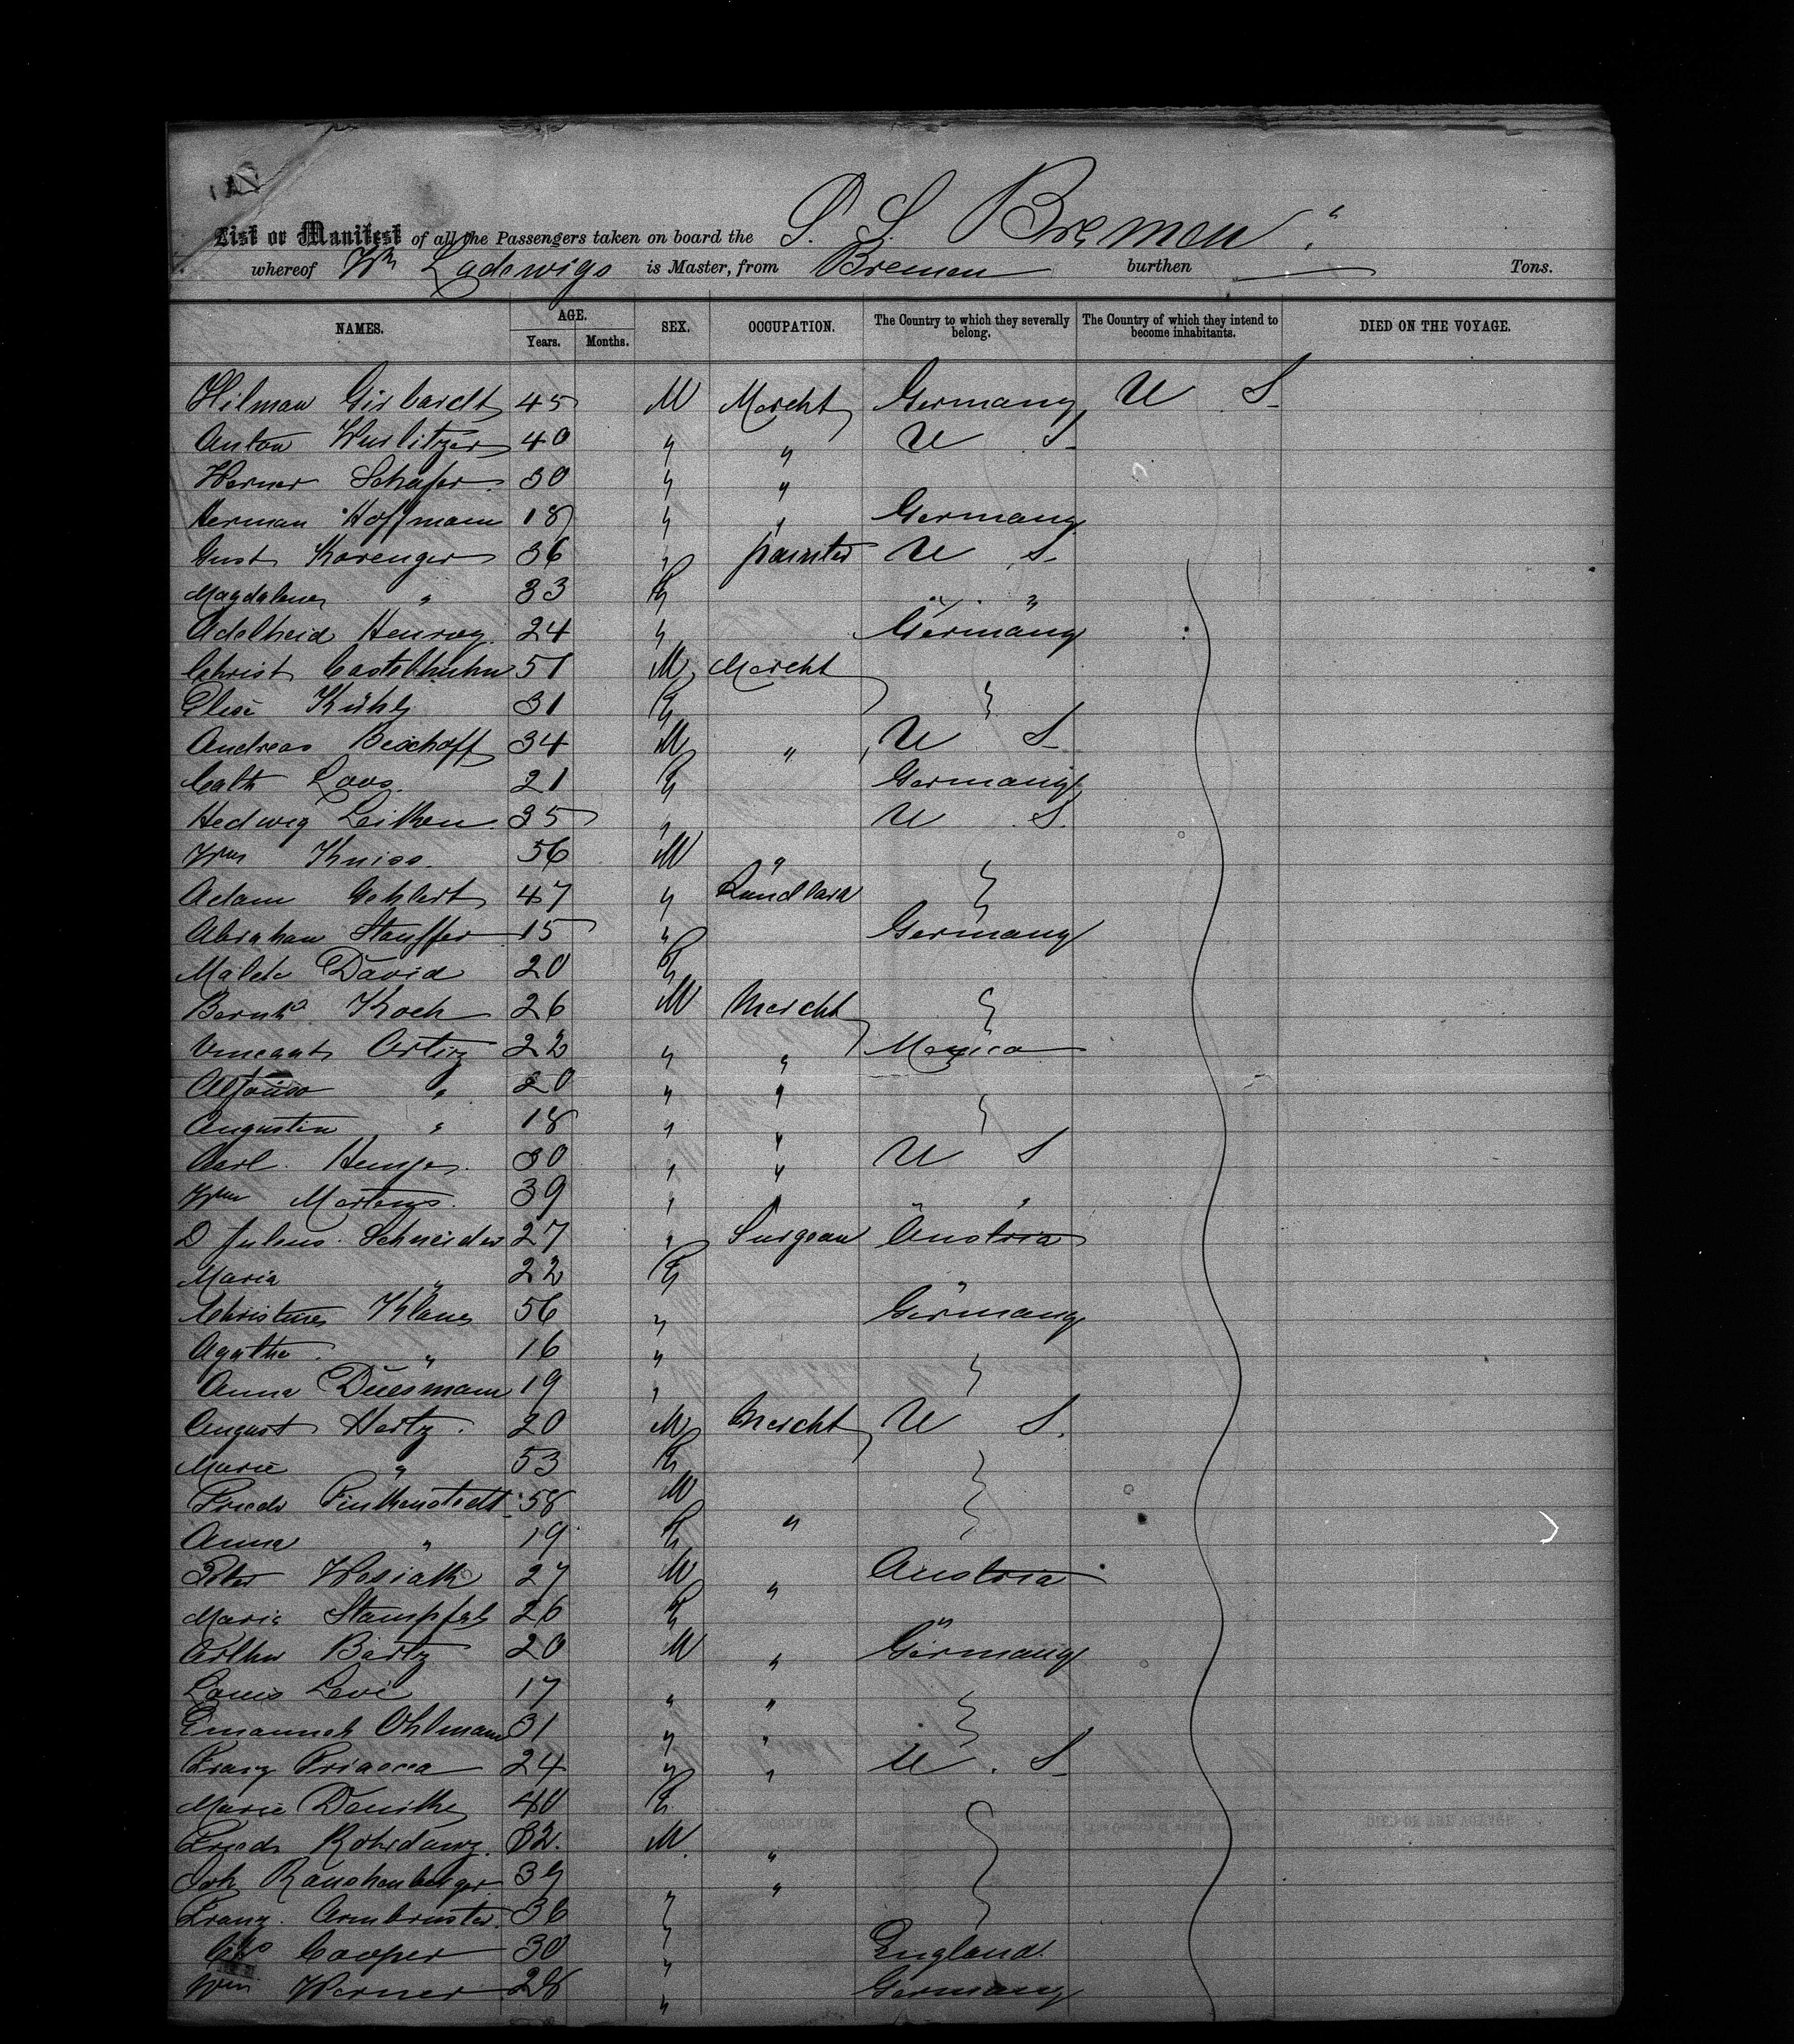 List or Manifest of all the Passengers taken on board the S. S. Bremen
whereof Wm Ladewigs is Master, from Bremen burthen Tons.
NAMES. AGE. Years. Months. SEX. OCCUPATION. The Country to which they severally belong. The Country of which they intend to become inhabitants. DIED ON THE VOYAGE.
Hilmar Girbardt 45 M Mercht Germany U S
Anton Wurlitzer 40 " " U S
Werner Schafer 30 " "
Herman Hoffmann 18 " " Germany
Gust Korenger 36 " painter U S
Magdalena " 33 F " "
Adelheid 24 " Germany
Christ Castelhuhn 51 M Mercht
Elise Kühl 31 F
Andreas Bischoff 34 M " U S
Cath Loos 21 F Germany
Hedwig Leithen 35 " U S
Wm Kniss 56 M "
Adam Gehlert 47 " Landlord
Abraham Stauffer 15 " Germany
Malch David 20 F
Bernhd Koch 26 M Mercht
Vincent Ortiz 22 " " Mexico
Alfonso " 20 " "
Augustin " 18 " "
Carl 30 " " U S
Wm Mertens 39 " " " "
D Julius Schneider 27 " Surgeon Austria
Maria " 22 F "
Christine Klaus 56 " Germany
Agathe " 16 "
Anna Duesmann 19 "
August Hertz 20 M Mercht U S
Marie " 53 F
Friedr Finkenstedt 58 M "
Anna " 19 F
Peter Wesiack 27 M " Austria
Marie Stampfel 26 F "
Arthur Bartz 20 M " Germany
Louis Levi 17 " "
Emanuel Ohlmann 31 " "
Franz Priacca 24 " " U S
Marie 40 F
Friedr 32 M "
Joh Rauchenberger 39 " "
Franz Armbruster 36 "
Cooper 30 " England
Wm Werner 28 " Germany